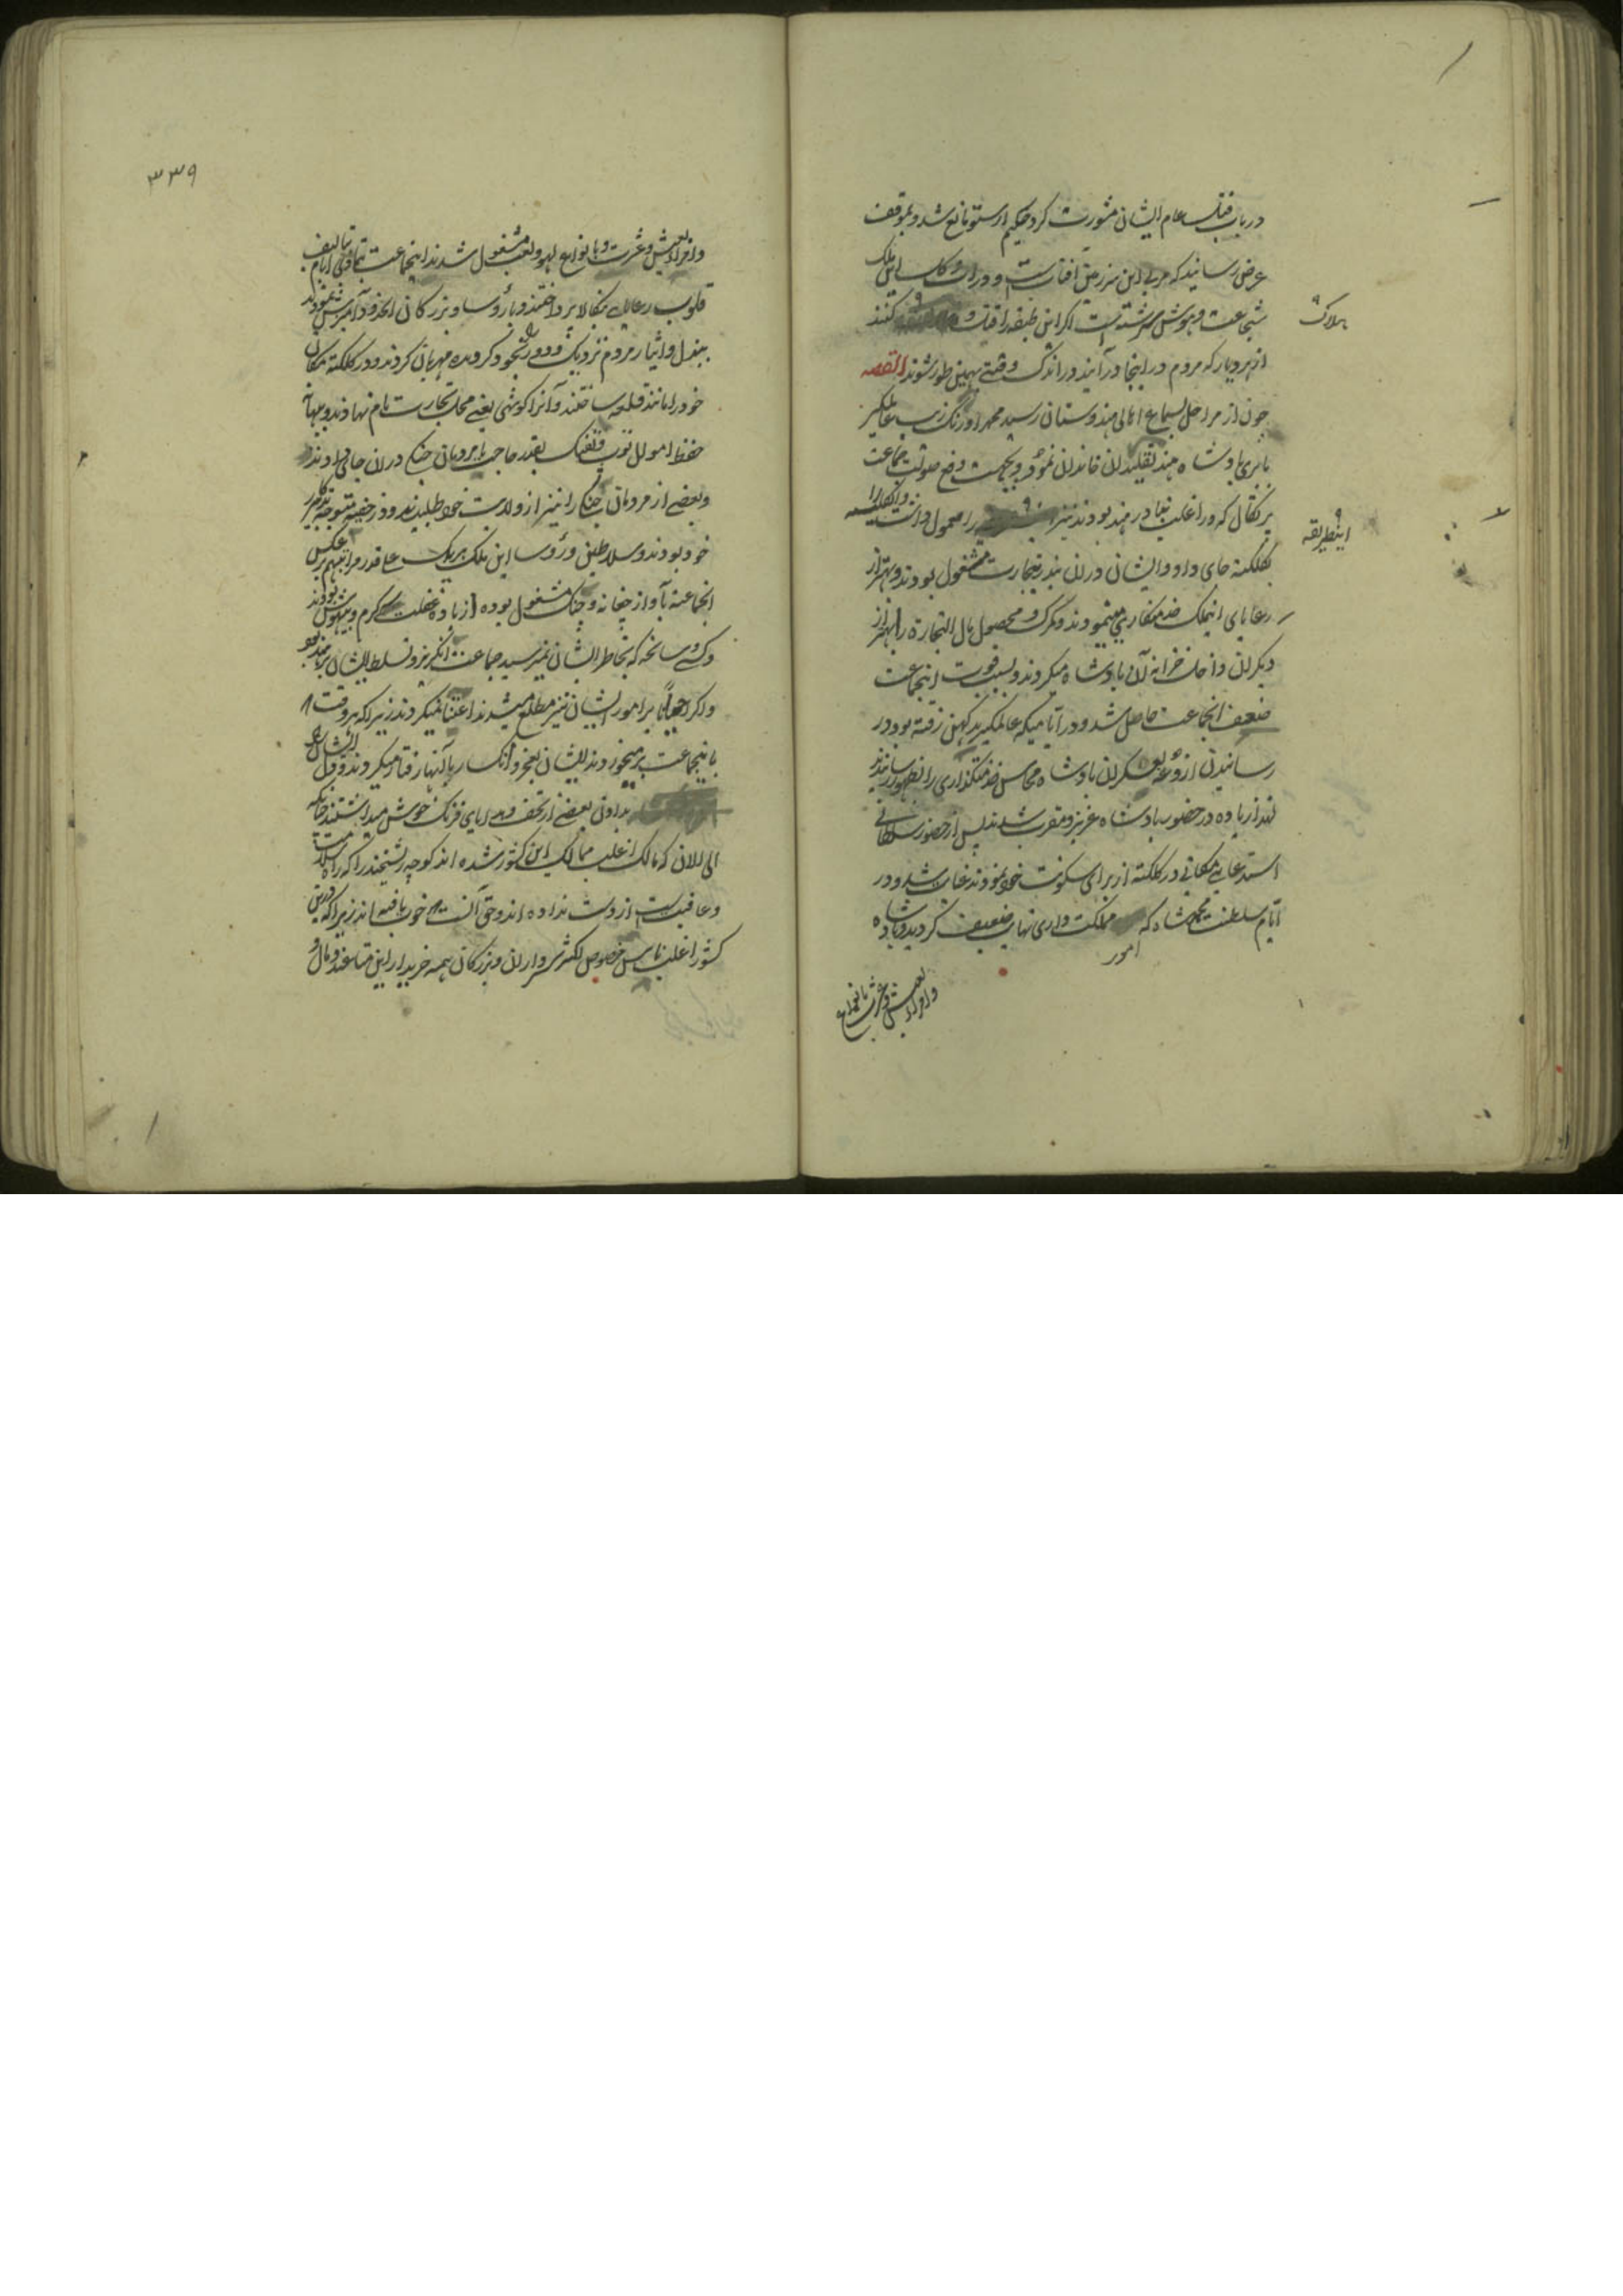 در باب قتل عام ایشان مشورت کرد حکیم ارسطو مانع شد و بموقف
عرض رسانید که مربی این سرزمین آفتاب است و در آب و گل این ملک
شجاعت و هوش سرشته است اگر این طبقه را قتل و کنند
هلاک
از هر دیار که مردم در اینجا درآیند در اندک وقتی بهمین طور شوند القصه
چون از مراحل بسماع اهالی هندوستان رسید محمد اورنگ زیب عالمگیر
بابری پادشاه هند تقلید آن خاندان نموده و بجهت دفع صولت جماعت
پرتکال که در اغلب بنادر هند بودند نیز را معمول داشت و انگلیسه را
اینطریقه
بکلکته جای داد و ایشان در آن بندر بتجارت مشغول بودند و بهتر از
رعایای اینملک خدمتکاری مینمودند و گمرک و محصول مال التجاره را بهتر از
دیگران داخل خزانه آن پادشاه میکردند و بسبب قوت اینجماعت
ضعف انجماعت حاصل شد و در ایامیکه عالمگیر بدکهن رفته بود در
رسانیدن آزوغه بعسکر آن پادشاه محاسن خدمتگذاری را بظهور رسانیدند
لهذا زیاده در حضور پادشاه عزیز و مقرب شدند پس از حضور سلطانی
استدعای مکانی در کلکته از برای سکونت خود نمودند عنایت شد و در
ایام سلطنت محمد شاه که مملکت داری نهایت ضعیف گردید و پادشاه
امور
و امرا بعیش و عشرت بانواع
۳۳۹
و امرا بعیش و عشرت و بانواع لهو و لعب مشغول شدند اینجماعت بتمادی ایام بتالیف
قلوب رعایای بنکالا پرداختند و با رؤسا و بزرگان اخذ و آمیزش نمودند
ببذل و ایثار مردم نزدیک و دور را بخود گرویده مهربان کردند و در کلکته مکان
خود را مانند قلعه ساختند و آنرا کوتهی یعنی محل تجارت نام نهادند و ببهانه
حفظ اموال توپ و تفنگ بقدر حاجت با مردمان جنگی در آن جای دادند
و بعضی از مردمان جنگی را نیز از ولایت خود طلبیدند و در خفیه متوجه تدبیر کار
خود بودند و سلاطین و رؤسا این ملک هر یک علی قدر مراتبهم برعکس
انجماعت بآواز چغانه و چنگ مشغول بوده از باده غفلت سرگرم و بیهوش بودند
و کسی سانحه که بخاطر ایشان نمیرسید جماعت انگریز و تسلط ایشان بر هند بود
و اگر احیاناً بر امور ایشان نیز مطلع میشدند اعتنا نمیکردند زیرا که هر وقت
باینجماعت بر میخوردند ایشان بعجز و انکسار با آنها رفتار میکردند و دل ایشان را
بدادن بعضی از تحف و هدایای فرنگ خوش میداشتند چنانکه
الی الان که مالک اغلب ممالک این کشور شده اند کوچه ریشخند را که راه سلامت
و عافیت است از دست نداده اند و حق آنست خوب یافته اند زیرا که در این
کشور اغلب ناس خصوص اکثر سرداران و بزرگان همه خریدار این متاعند و مال و